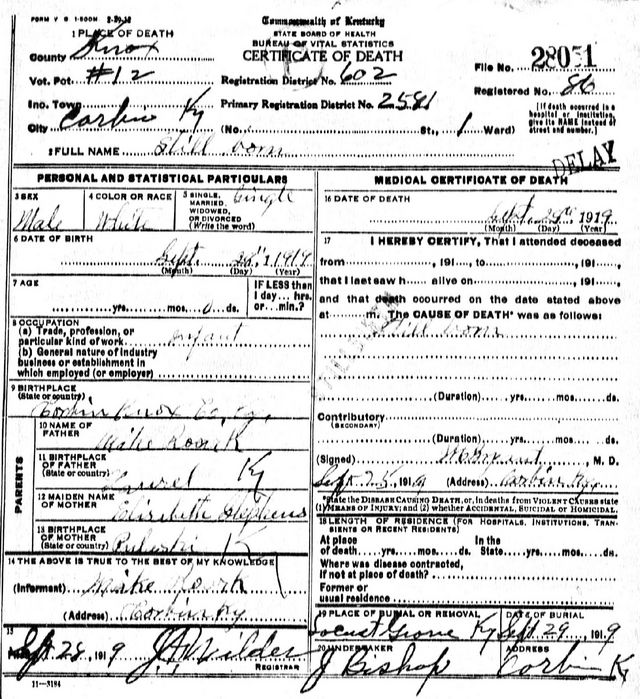 FORM V S 1-500M 2-20-12
Commonwealth of Kentucky
STATE BOARD OF HEALTH
BUREAU OF VITAL STATISTICS
CERTIFICATE OF DEATH
1 PLACE OF DEATH
County Knox
File No. 28051
Vot. Pct #12
Registration District No. 602
Registered No. 86
Inc. Town
Primary Registration District No. 2581
[If death occurred in a hospital or institution, give its NAME instead of street and number.]
City Corbin Ky (No. St., 1 Ward)
2 FULL NAME Still born
DELAY
PERSONAL AND STATISTICAL PARTICULARS
3 SEX Male
4 COLOR OR RACE White
5 SINGLE, MARRIED, WIDOWED, OR DIVORCED (Write the word) Single
6 DATE OF BIRTH
Sept. 1919
(Month) (Day) (Year)
7 AGE
yrs. mos. 0 ds.
IF LESS than 1 day... hrs. or... min.?
8 OCCUPATION
(a) Trade, profession, or
particular kind of work infant
(b) General nature of industry
business or establishment in
which employed (or employer)
9 BIRTHPLACE
(State or country)
Corbin Knox Co. Ky.
PARENTS
10 NAME OF FATHER
Mike Roark
11 BIRTHPLACE OF FATHER
(State or country)
Laurel Ky
12 MAIDEN NAME OF MOTHER
Stephens
13 BIRTHPLACE OF MOTHER
(State or country)
Pulaski K
14 THE ABOVE IS TRUE TO THE BEST OF MY KNOWLEDGE
(Informant) Mike Roark
(Address) Corbin Ky
15
Sept 28 1919 Wilder
REGISTRAR
11-3184
MEDICAL CERTIFICATE OF DEATH
16 DATE OF DEATH
Sept. 1919
(Month) (Day) (Year)
17 I HEREBY CERTIFY, That I attended deceased
from, 191, to, 191,
that I last saw h alive on, 191,
and that death occurred on the date stated above
at m. The CAUSE OF DEATH* was as follows:
Still born
(Duration) yrs. mos. ds.
Contributory
(SECONDARY)
(Duration) yrs. mos. ds.
(Signed), M. D.
Sept 25 1919 (Address) Corbin Ky
*State the DISEASE CAUSING DEATH, or, in deaths from VIOLENT CAUSES state
(1) MEANS OF INJURY; and (2) whether ACCIDENTAL, SUICIDAL OR HOMICIDAL.
18 LENGTH OF RESIDENCE (FOR HOSPITALS, INSTITUTIONS, TRANSIENTS OR RECENT RESIDENTS)
At place In the
of death yrs. mos. ds. State yrs. mos. ds.
Where was disease contracted,
if not at place of death?
Former or
usual residence
19 PLACE OF BURIAL OR REMOVAL
Locust Grove Ky
DATE OF BURIAL
Sept. 29 1919
20 UNDERTAKER
J Bishop
ADDRESS
Corbin Ky